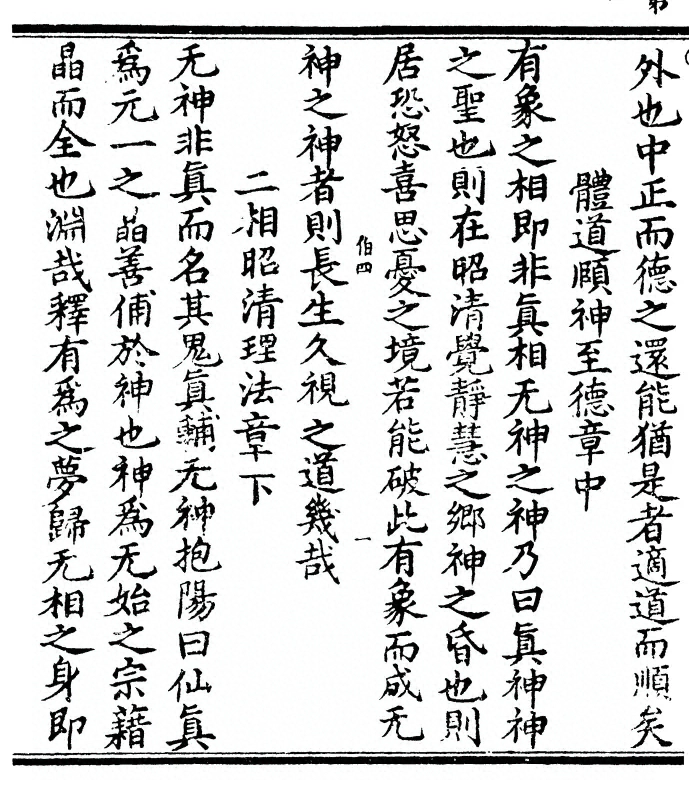 第
外也中正而德之還能猶是者適道而順矣
體道頤神至德章中
有象之相即非眞相无神之神乃曰眞神神
之聖也則在昭清覺靜慧之鄉神之昏也則
居恐怒喜思憂之境若能破此有象而成无
伯四
一
神之神者則長生久視之道幾哉
二相昭清理法章下
无神非眞而名其鬼眞輔无神抱陽曰仙眞
爲元一之晶善俌於神也神爲无始之宗藉
晶而全也淵哉釋有爲之夢歸无相之身即